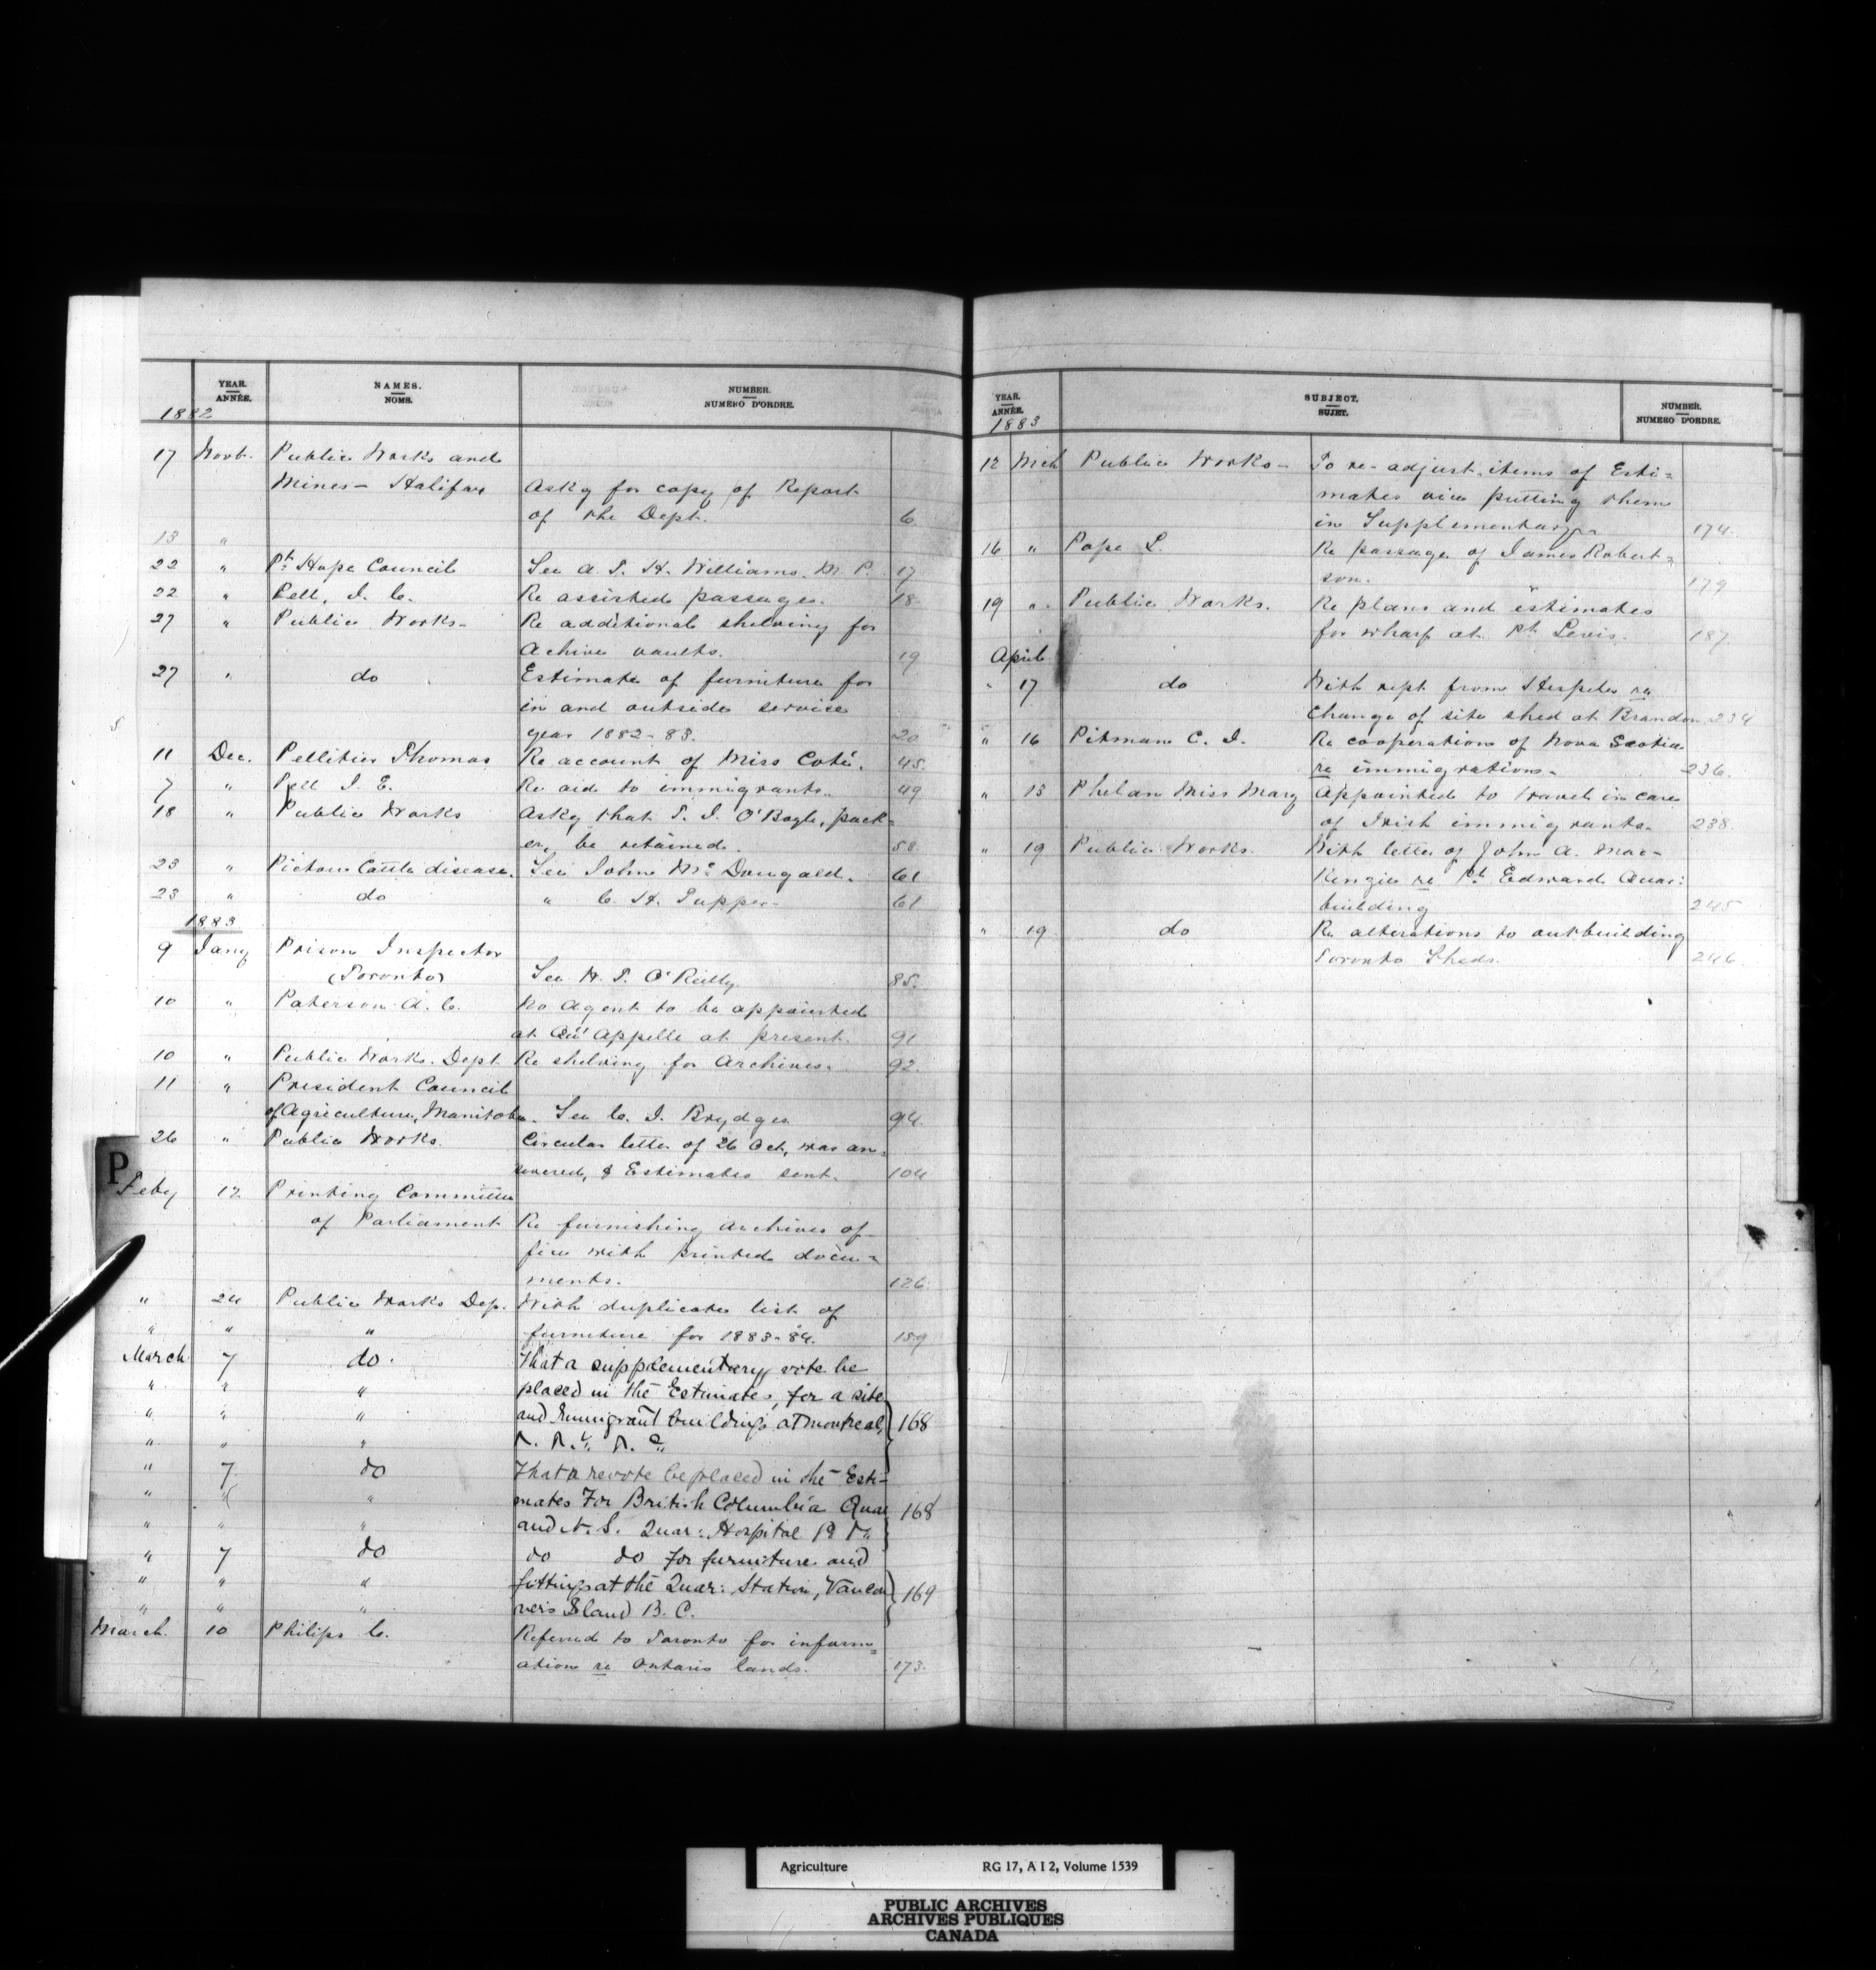 YEAR. ANNÉE. NAMES. NOMS. NUMBER. NUMERO D'ORDRE.
1882
17 Novb. Public Works and
Mines - Halifax Askg for copy of Report
of the Dept. 6
13 "
22 " Pt. Hope Council See A. T. H. Williams. M. P. 17
22 " Pell, J. E. Re assisted passages. 18
27 " Public Works - Re additional shelving for
Achive vaults. 19
27 " do Estimate of furniture for
in and outside service
year 1882-83. 20
11 Dec. Pelletier Thomas Re account of Miss Coté. 45
7 " Pell J. E. Re aid to immigrants. 49
18 " Public Works Askg that T. J. O'Bogle, pack-
er, be retained. 58
23 " Pictou Cattle disease. See John Mc Dougald. 61
23 " do " C. H. Tupper 61
1883
9 Jany Prison Inspector
(Toronto) See H. T. O'Reilly. 85
10 " Paterson A. C. No Agent to be appointed
at Qu' Appelle at present. 91
10 " Public Works. Dept Re shelving for Archives. 92
11 " President Council
of Agriculture, Manitoba. See C. J. Brydges 94
26 " Public Works. Circular letter of 26 Oct, was an-
swered, & Estimates sent. 104
P
Feby 12 Printing Committee
of Parliament Re furnishing archives of
fice with printed docu-
ments. 126
" 24 Public Works Dep. With duplicate list of
" " " furniture for 1883-84. 159
March 7 do. That a supplementary vote be
" " " placed in the Estimates, for a site
" " " and Immigrant buildings at Montreal, 168
" " "
" 7 do That a revote be placed in the Esti-
" " " mates For British Columbia Quar 168
" " " and N. S. Quar: Hospital
" 7 do do do for furniture and
" " " fittings at the Quar: Station, Vancou 169
" " " vers Island B. C.
March. 10 Philips C. Referred to Toronto for inform-
ation re Ontario lands. 173.
YEAR. ANNÉE. SUBJECT. SUJET. NUMBER. NUMERO D'ORDRE.
1883
12 Mch Public Works - To re-adjust items of Esti-
mates vice putting them
in Supplementary 174
16 " Pope L. Re passage of James Robert-
son. 179
19 " Public Works. Re plans and estimates
for wharf at Pt. Levis. 187
April
" 17 do With rept from Hespeler re
change of site shed at Brandon 234
" 16 Pitman C. J. Re cooperation of Nova Scotia
re immigration - 236.
" 13 Phelan Miss Mary Appointed to travel in care
of Irish immigrants. 238
" 19 Public Works. With letter of John A. Mac-
Kenzie re Pt. Edward Quar:
building 245
" 19 do Re alterations to outbuilding
Toronto Sheds. 246
Agriculture RG 17, A I 2, Volume 1539
PUBLIC ARCHIVES
ARCHIVES PUBLIQUES
CANADA